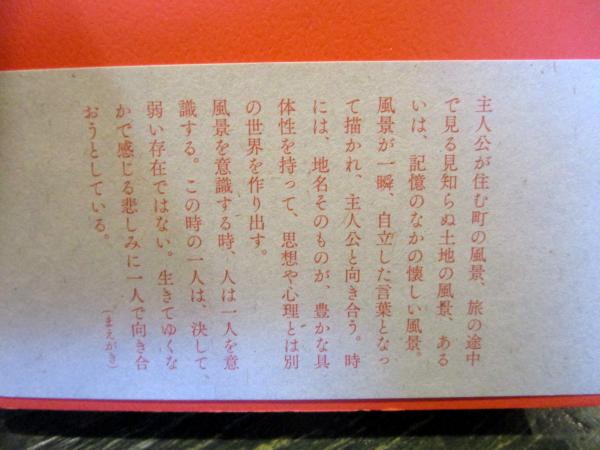 主人公が住む町の風景、旅の途中
で見る見知らぬ土地の風景、ある
いは、記憶のなかの懐しい風景。
風景が一瞬、自立した言葉となっ
て描かれ、主人公と向き合う。時
には、地名そのものが、豊かな具
体性を持って、思想や心理とは別
の世界を作り出す。
風景を意識する時、人は一人を意
識する。この時の一人は、決して、
弱い存在ではない。生きてゆくな
かで感じる悲しみに一人で向き合
おうとしている。
(まえがき)